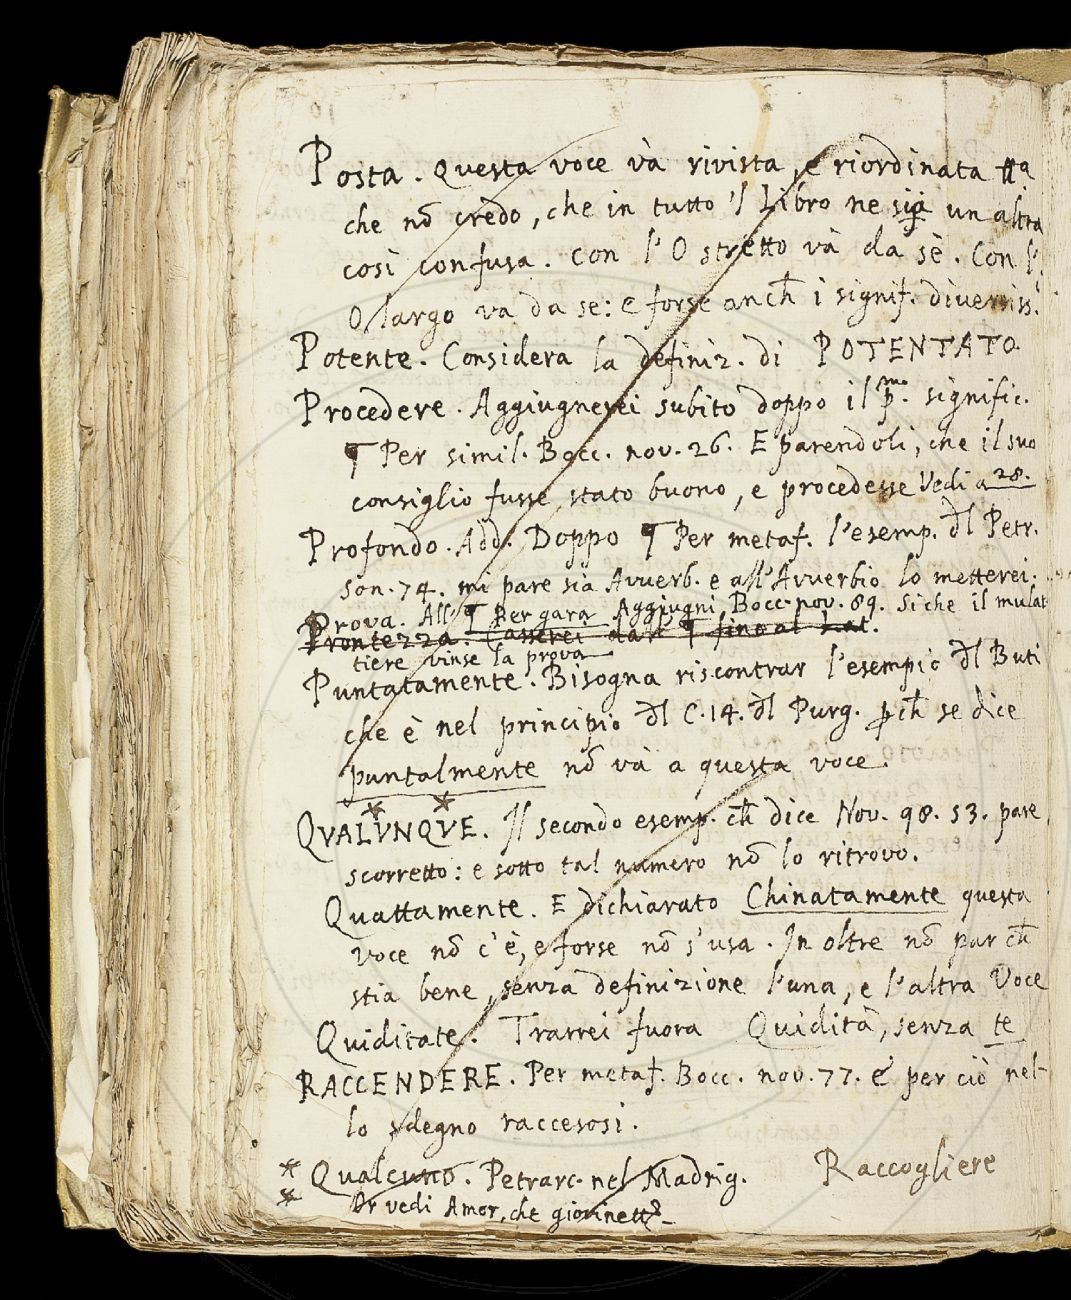 Posta. Questa voce và rivista, e riordinata ttª
che nō credo, che in tutto 'l Libro ne sia un altra
così confusa. Con l'O stretto và da sè. Con l'
O largo va da se: e forse anch̄ i signif. diversiss.
Potente. Considera la definiz. di POTENTATO.
Procedere. Aggiugnerei subito doppo il pº. signific.
¶ Per simil. Bocc. nov. 26. E parendoli, che il suo
consiglio fusse stato buono, e procedesse Vedi a 28.
Profondo. Add. Doppo ¶ Per metaf. l'esemp. dl Petr.
son. 74. mi pare sia Avverb. e all'Avverbio lo metterei.
Prova. All ¶ Per gara Aggiugni Bocc. nov. 89. Siche il mulat
Prontezza. Casserei dal ¶ fino al
tiere vinse la prova
Puntatamente. Bisogna riscontrar l'esempio dl Buti
che è nel principio dl C. 14. dl Purg. pch̄ se dice
puntalmente nō và a questa voce.
QVALVNQVE. Il secondo esemp. ch̄ dice Nov. 98. 53. pare
scorretto: e sotto tal numero nō lo ritrovo.
Quattamente. E dichiarato Chinatamente questa
voce nō c'è, e forse nō s'usa. In oltre nō par ch̄
stia bene, senza definizione l'una, e l'altra Voce
Quiditate. Trarrei fuora Quidità, senza te
RACCENDERE. Per metaf. Bocc. nov. 77. E per ciò nel-
lo sdegno raccesosi.
* Qualcuno. Petrarc. nel Madrig. Raccogliere
* Or vedi Amor, che giovinetta